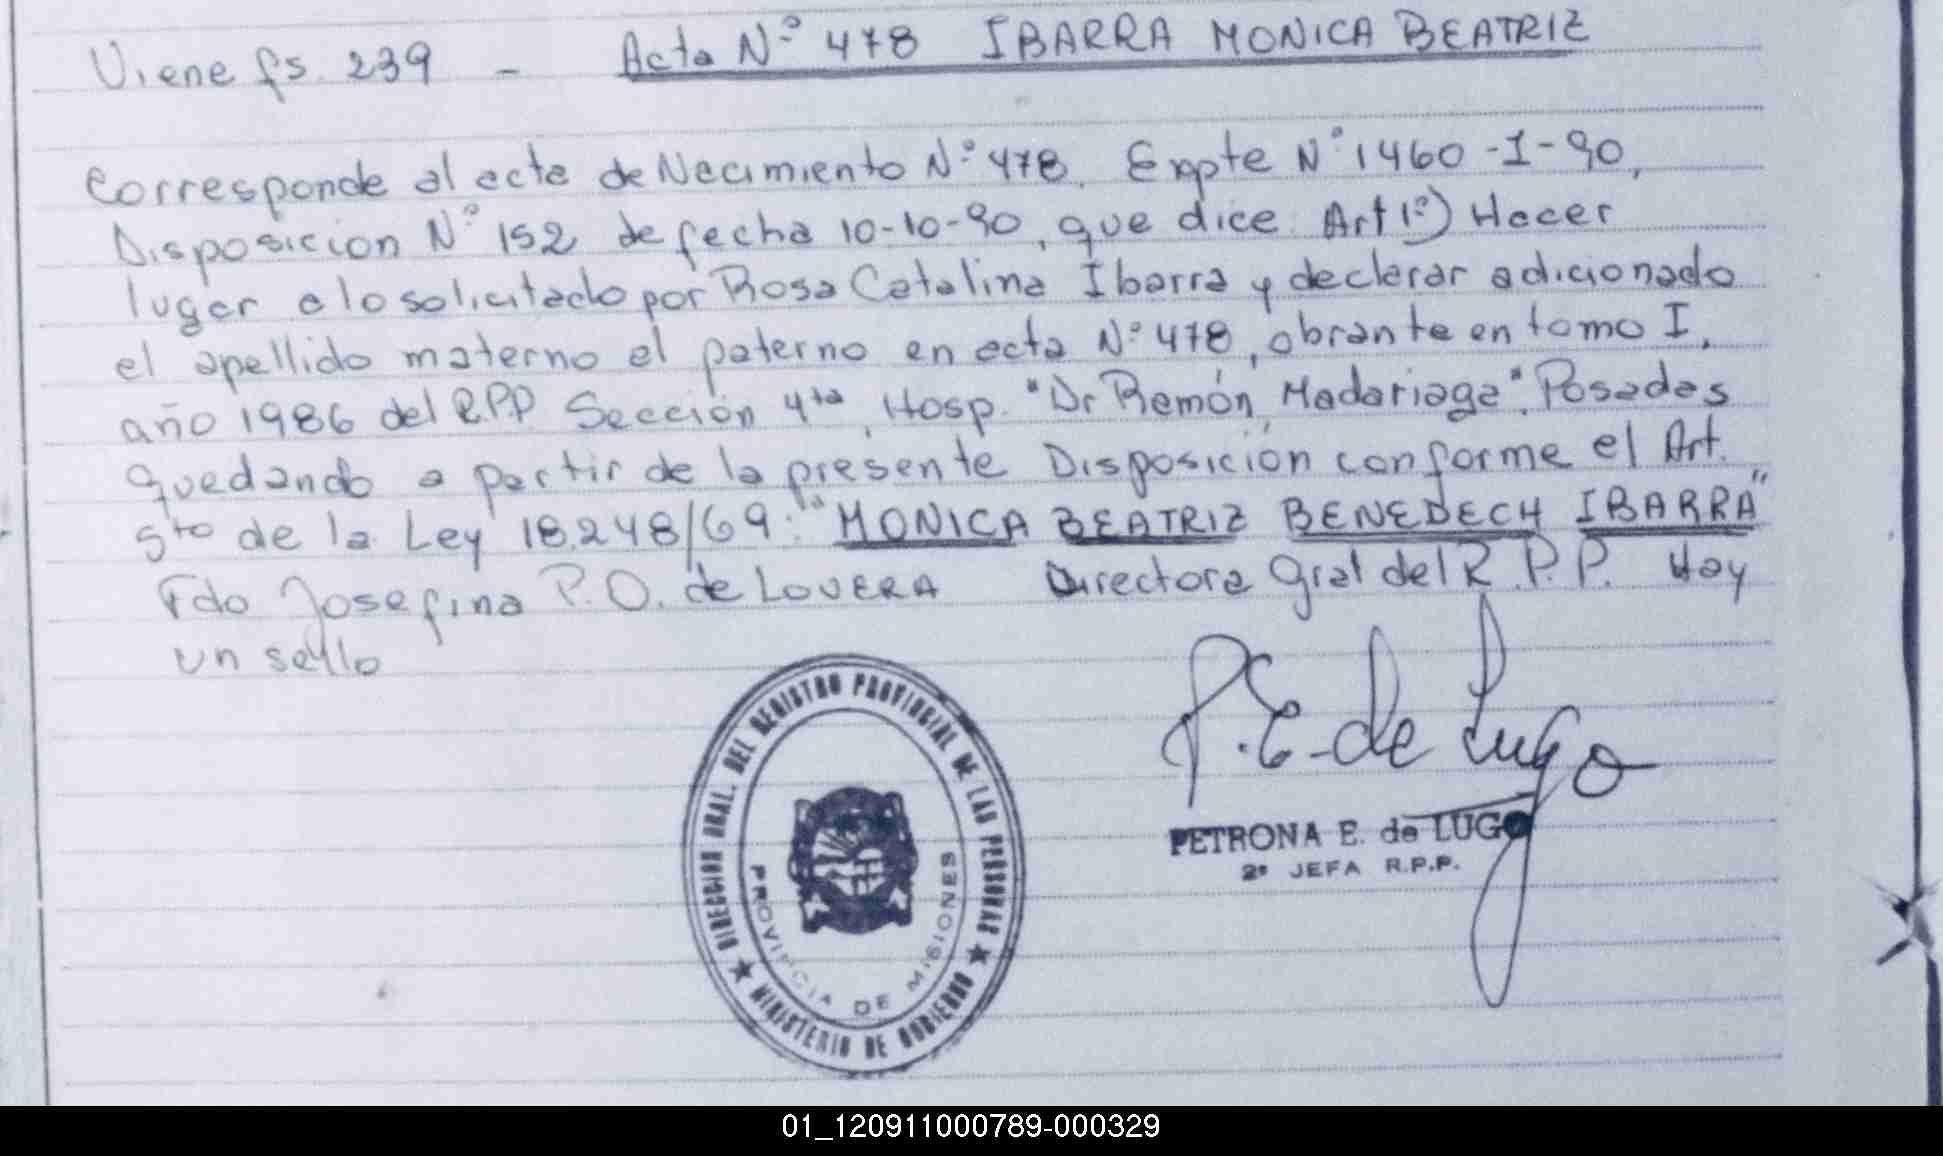 Viene fs. 239 - Acta Nº 478 IBARRA MONICA BEATRIZ
Corresponde al acta de Nacimiento Nº 478. Expte Nº 1460-I-90,
Disposicion Nº 152 de fecha 10-10-90, que dice: Art 1º) Hacer
lugar a lo solicitado por Rosa Catalina Ibarra y declarar adicionado
el apellido materno al paterno en acta Nº 478, obrante en tomo I,
año 1986 del R.P.P. Sección 4ta, Hosp. "Dr Ramón Madariaga". Posadas
quedando a partir de la presente Disposición conforme el Art.
5to de la Ley 18.248/69: "MONICA BEATRIZ BENEDECH IBARRA"
Fdo Josefina P.O. de LOVERA Directora Gral del R.P.P. Hay
un sello
DIRECCION GRAL. DEL REGISTRO PROVINCIAL DE LAS PERSONAS
MINISTERIO DE GOBIERNO
PROVINCIA DE MISIONES
P.E. de Lugo
PETRONA E. de LUGO
2º JEFA R.P.P.
01_120911000789-000329